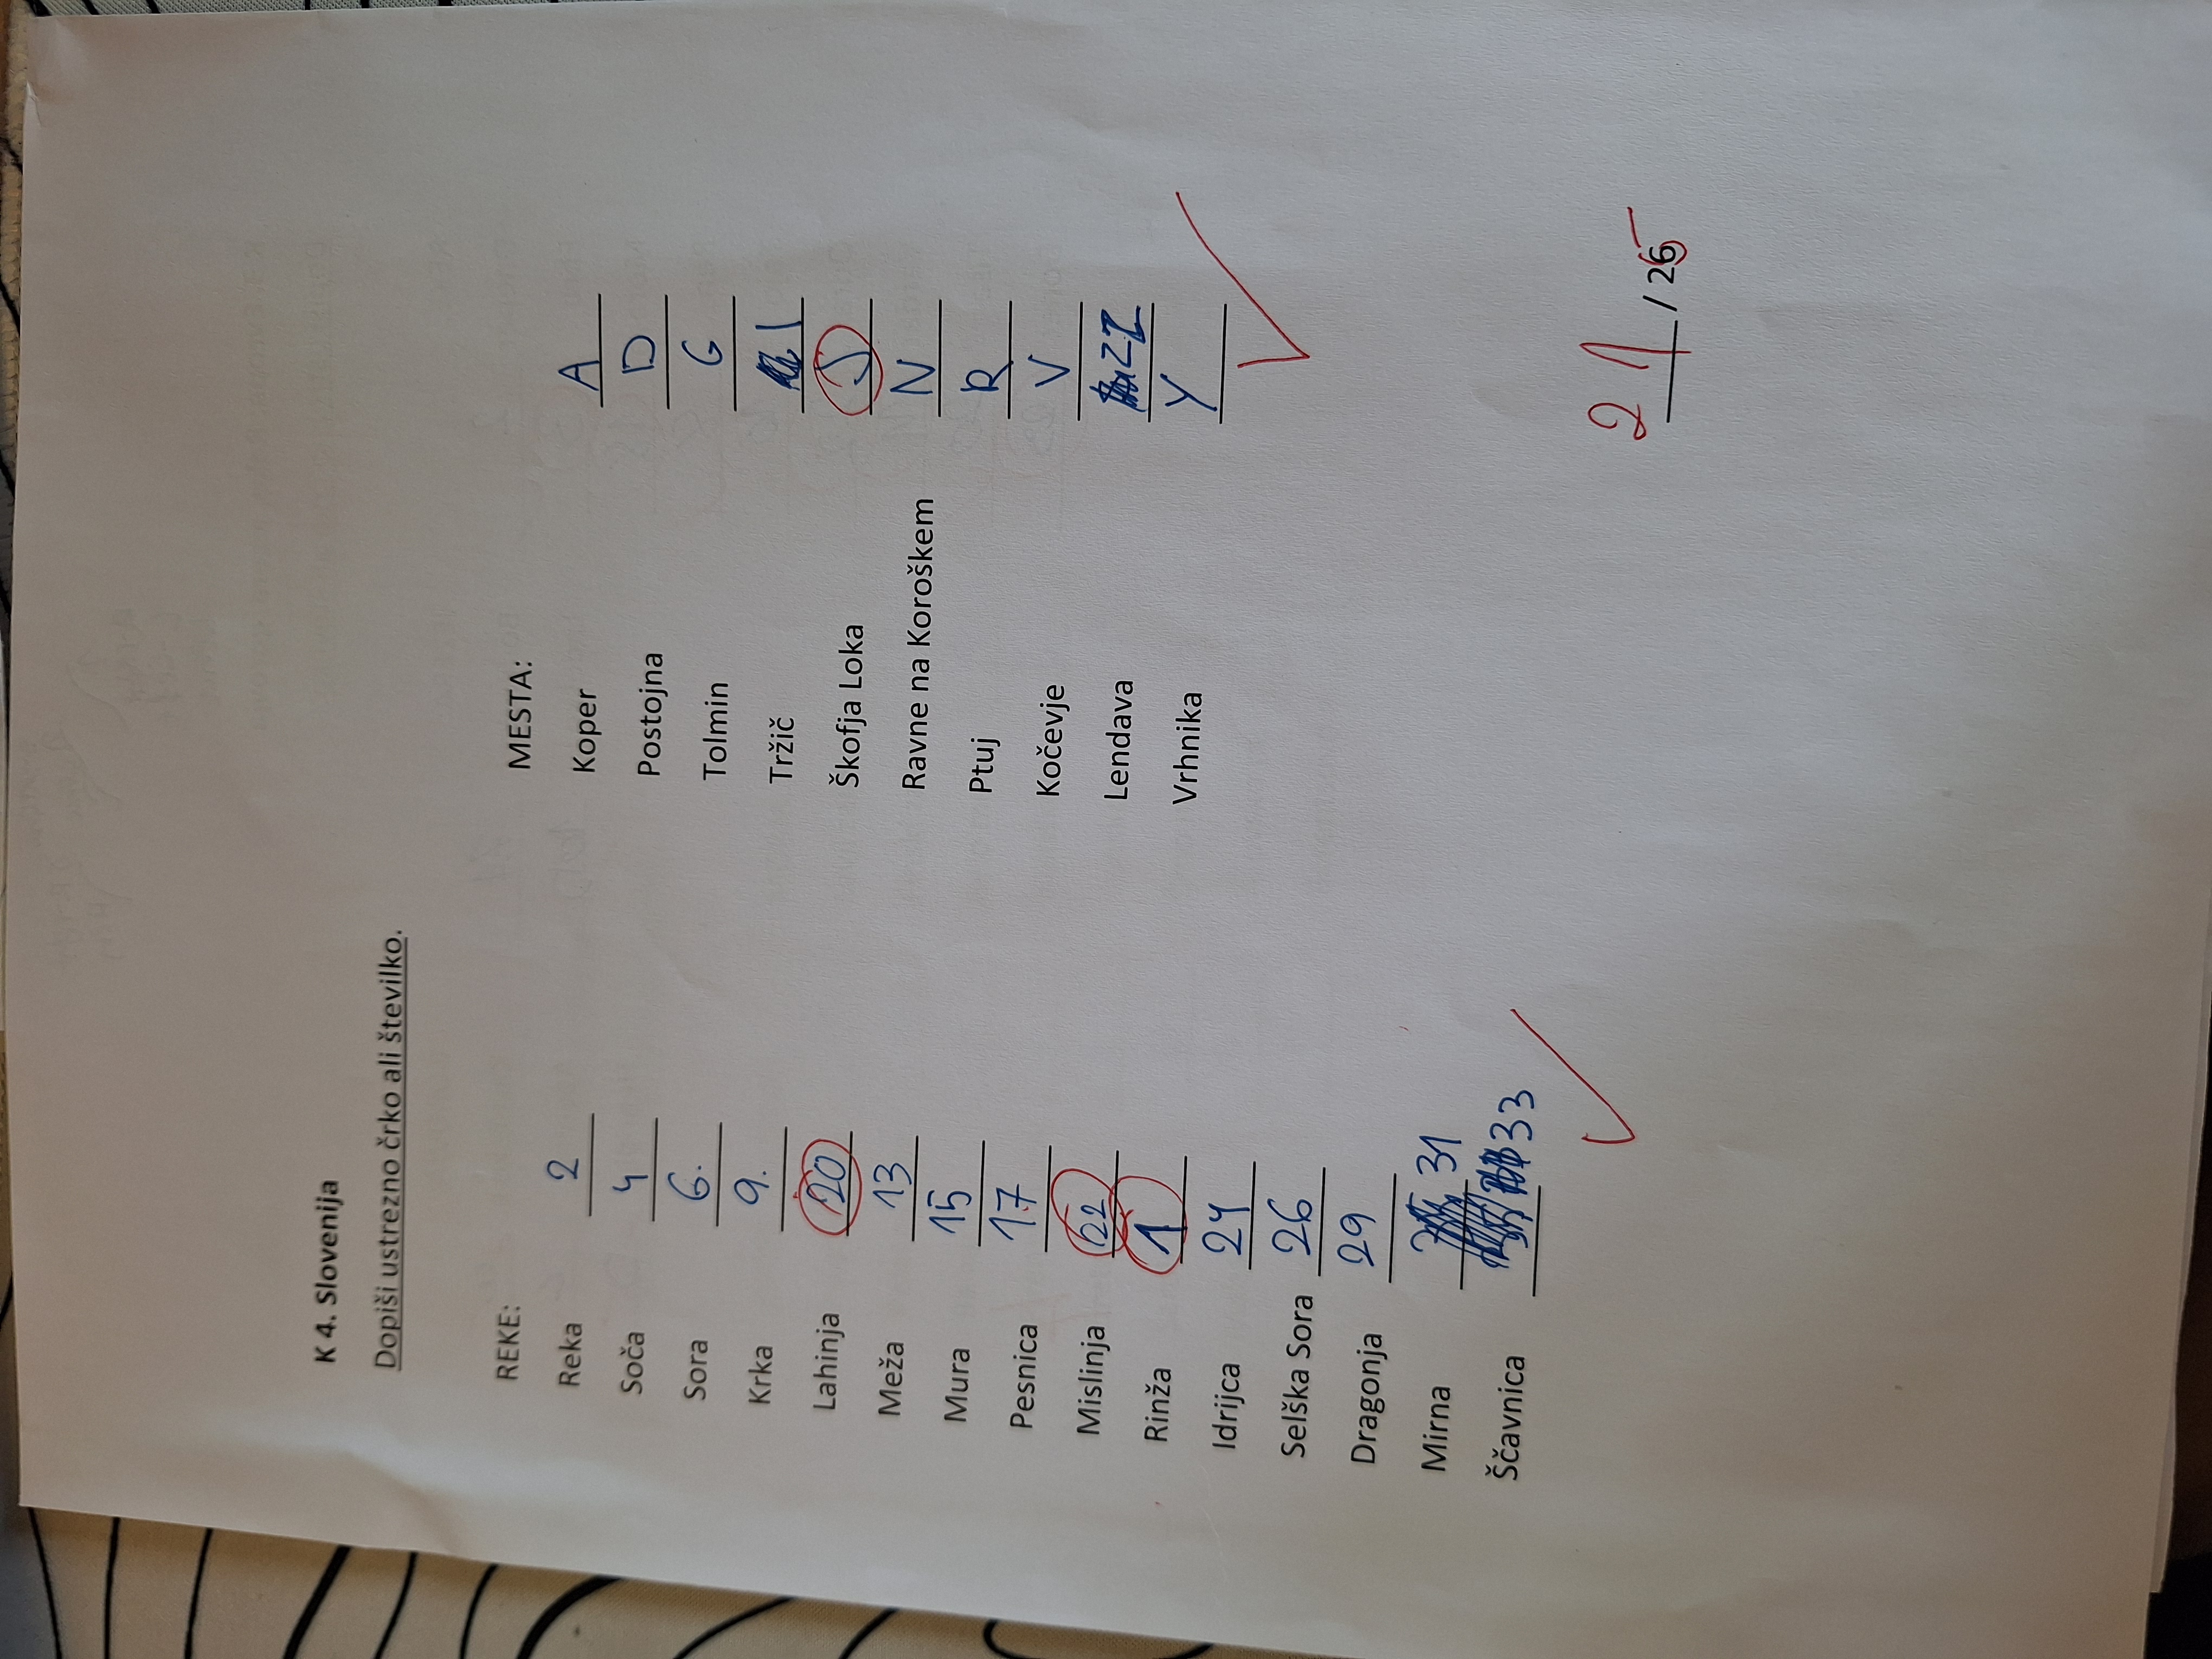 K 4. Slovenija
Dopiši ustrezno črko ali številko.
REKE:
Reka 2
Soča 4
Sora 6.
Krka 9.
Lahinja 20
Meža 13
Mura 15
Pesnica 17
Mislinja 22
Rinža 1
Idrijca 24
Selška Sora 26
Dragonja 29
Mirna 31
Ščavnica 33
MESTA:
Koper A
Postojna D
Tolmin G
Tržič I
Škofja Loka J
Ravne na Koroškem N
Ptuj R
Kočevje V
Lendava ZZ
Vrhnika Y
21 / 25